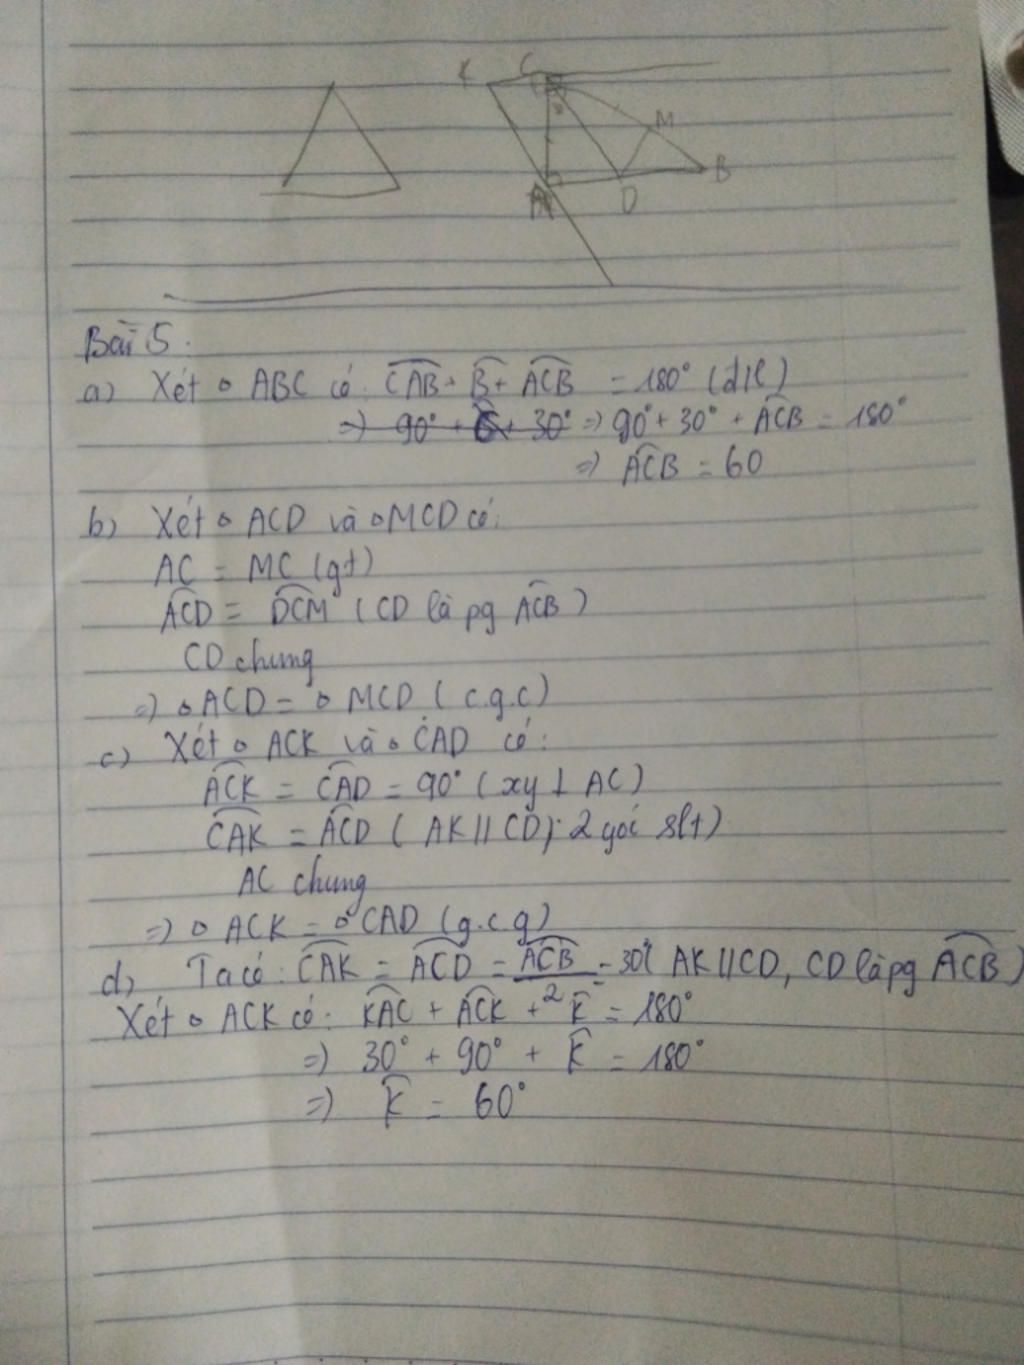 K C
M
B
A D
Bài 5.
a) Xét △ ABC có: CAB + B + ACB = 180° (đlí)
=> 90° + 30° => 90° + 30° + ACB = 180°
=> ACB = 60
b) Xét △ ACD và △MCD có:
AC = MC (gt)
ACD = DCM (CD là pg ACB)
CD chung
=> △ACD = △ MCD (c.g.c)
c) Xét △ ACK và △ CAD có:
ACK = CAD = 90° (xy ⊥ AC)
CAK = ACD (AK//CD; 2 góc slt)
AC chung
=> △ ACK = △CAD (g.c.g)
d) Ta có: CAK = ACD = ACB/2 = 30° (AK//CD, CD là pg ACB)
Xét △ ACK có: KAC + ACK + K = 180°
=> 30° + 90° + K = 180°
=> K = 60°